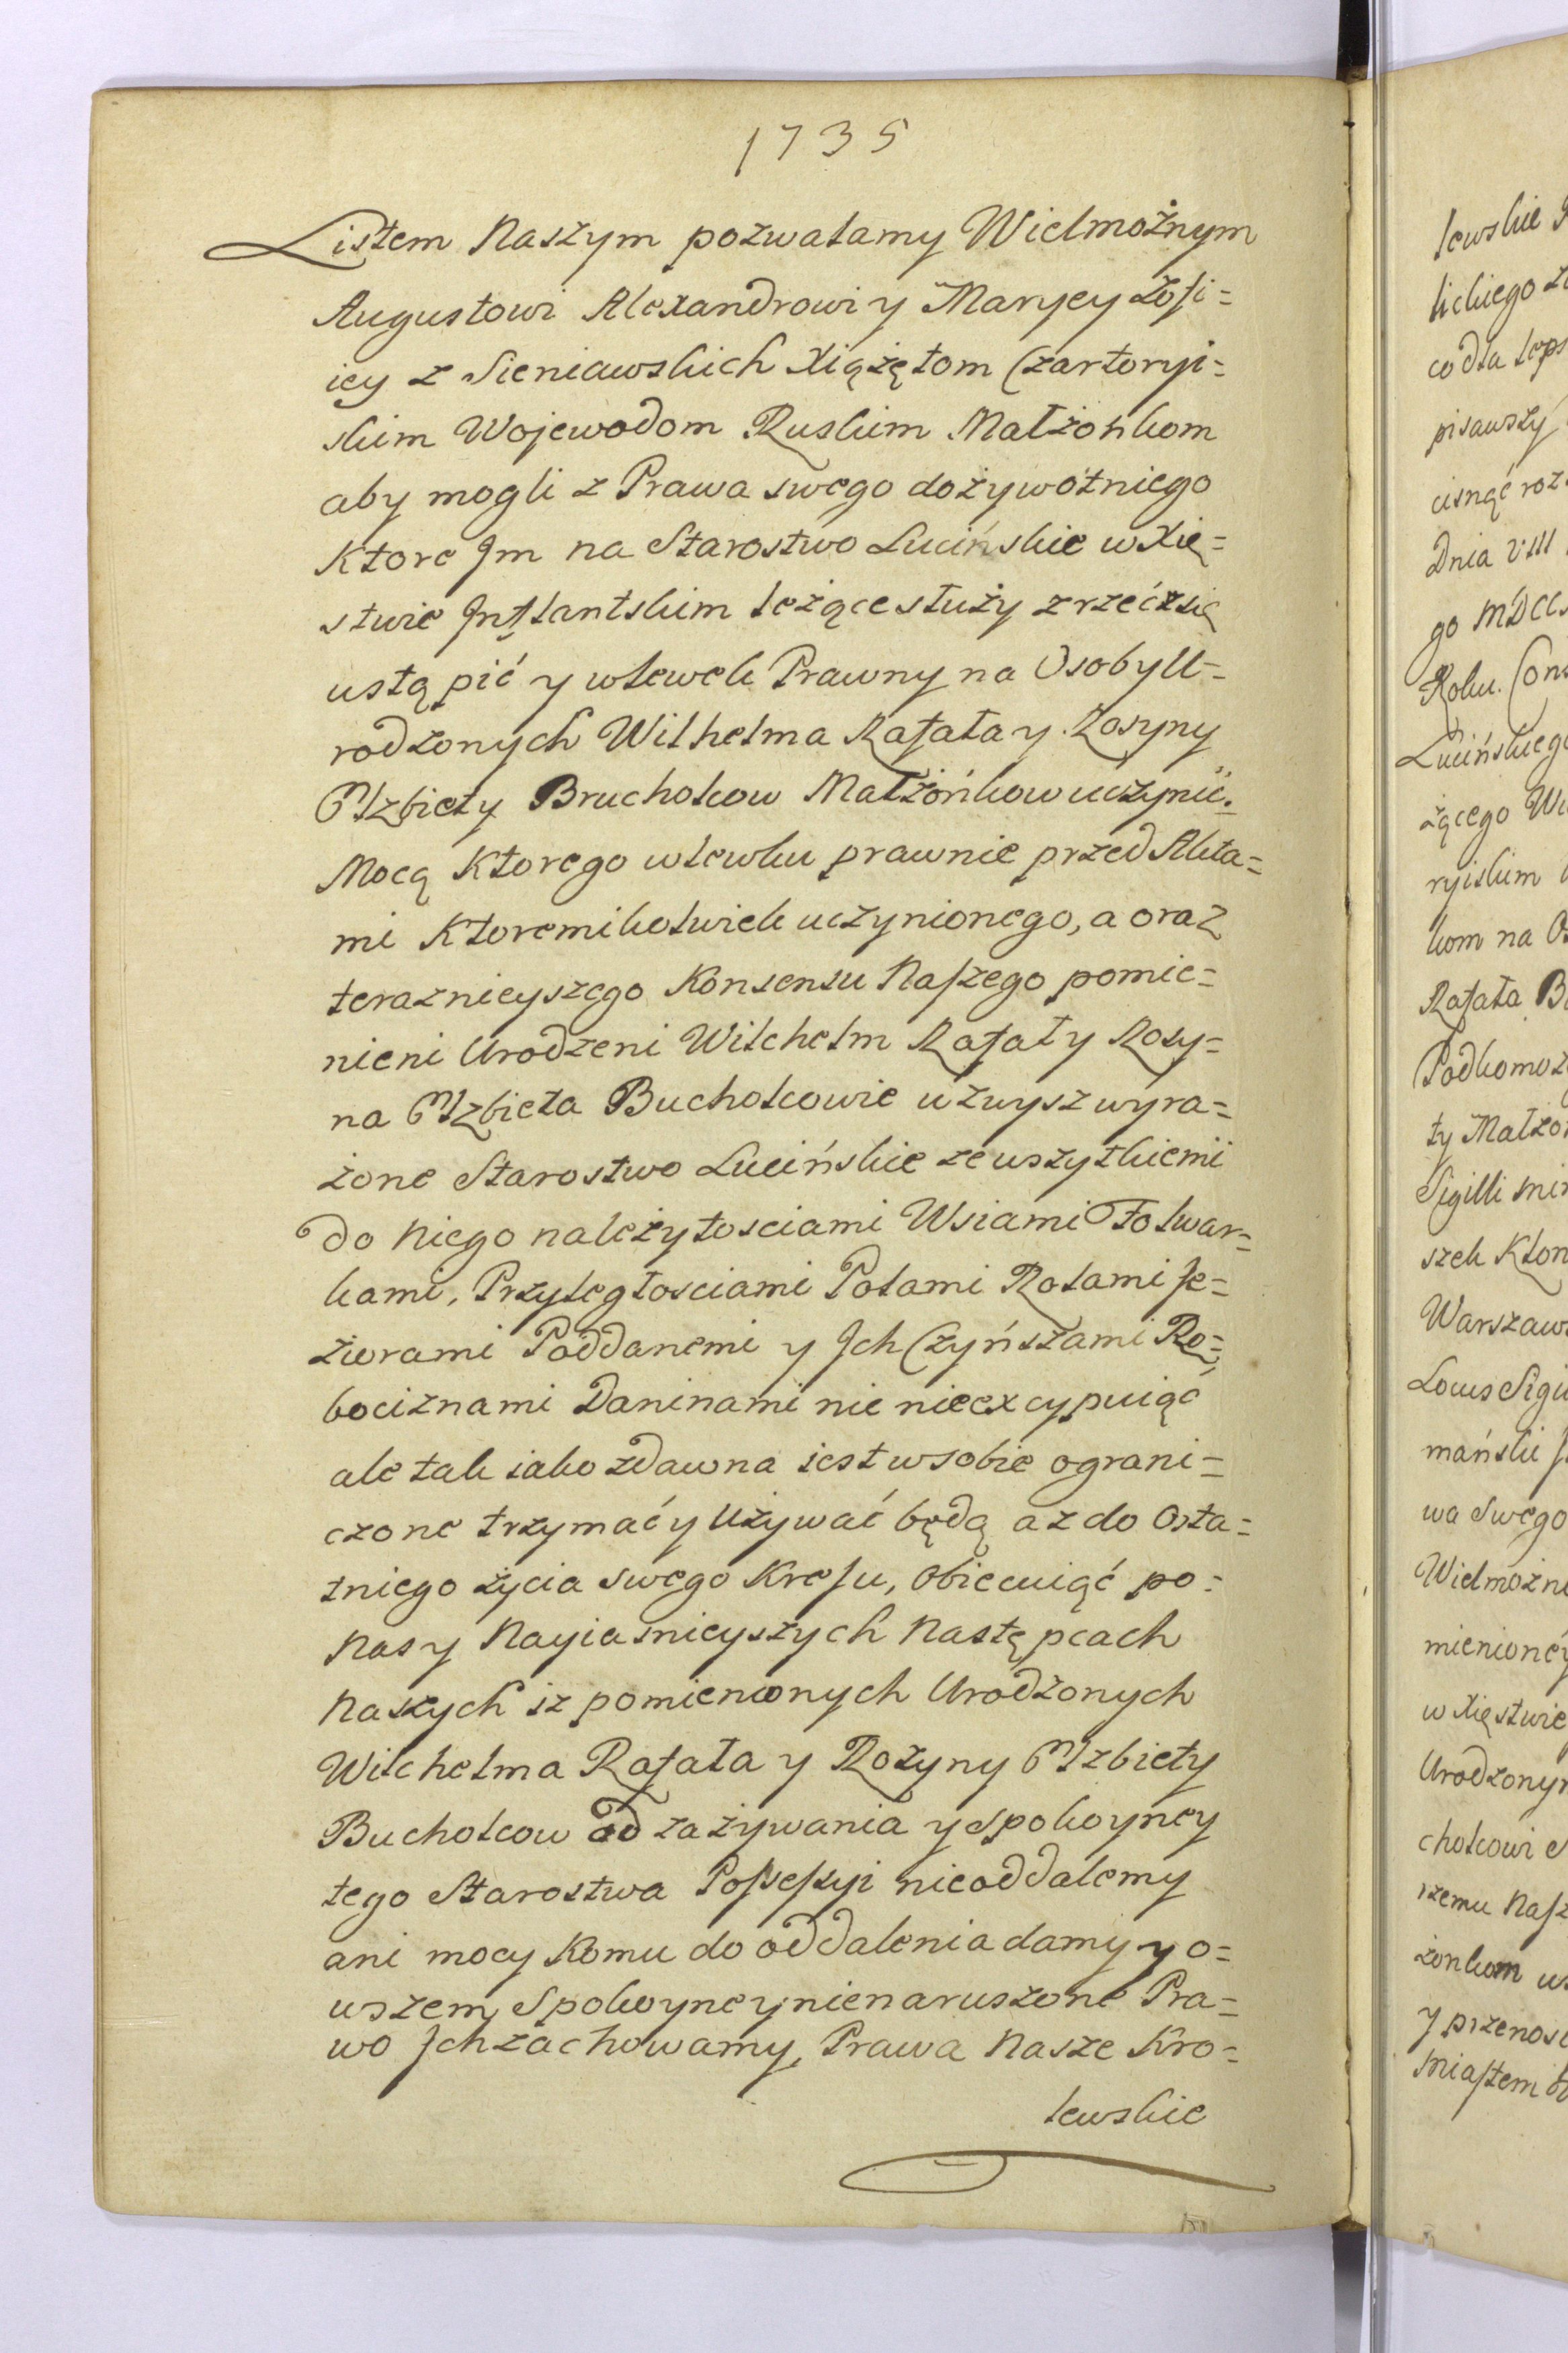 1735
Listem Naszym pozwalamy Wielmożnym
Augustowi Alexandrowi y Maryey Zofi=
iey z Sieniawskich Xiążętom Czartoryi=
skim Wojewodom Ruskim Małżonkom
aby mogli z Prawa swego dożywotniego
Ktore Jm na Starostwo Lucińskie w Xię=
stwie Inflantskim leżące służy zrzećzsię
ustąpić y wlewek Prawny na Osoby U=
rodzonych Wilhelma Rafała y Rozyny
Elzbiety Brucholcow Małżonkow uczynić.
Mocą Ktorego wlewku prawnie przed Akta=
mi Ktoremikolwiek uczynionego, a oraz
teraznieyszego Konsensu Naszego pomie=
nieni Urodzeni Wilchelm Rafał y Rozy=
na Elzbieta Bucholcowie wzwysz wyra=
żone Starostwo Lucińskie ze wszytkiemi
do Niego należytosciami Wsiami Folwar=
kami, Przyległosciami Polami Rolami Je=
ziorami Poddanemi y Jch Czyńszami Ro=
bociznami Daninami nic nieexcypuiąc
ale tak iako zdawna iest w sobie ograni=
czone trzymać y Używać będą az do Osta=
tniego życia swego Kresu, Obiecuiąć po=
Nas y Nayiasnieyszych Następcach
Naszych iz pomienionych Urodzonych
Wilchelma Rafała y Rozyny Elzbiety
Bucholcow od zażywania y Spokoyney
tego Starostwa Possessyi nieoddalemy
ani mocy Komu do oddalenia damy y o=
wszem Spokoyney nienaruszone Pra=
wo Jch zachowamy, Prawa Nasze Kro=
lewskie
lewskie
lickiego
co dla leps
pisawszy
cisnąć roz
Dnia VIII
go MDCC
Rolu. Cons
Lucińskiego
żącego Wi
ryiskim
kom na O
Rafała B
Podkomoz
ty Małżo
Sigilli min
szek Kton
Warszaw
Locus Sigi
mański
wa Swego
Wielmożn
mienioney
w Xięstwie
Urodzonym
cholcowi
szemu Nasz
żonkom
y przenos
Miastem